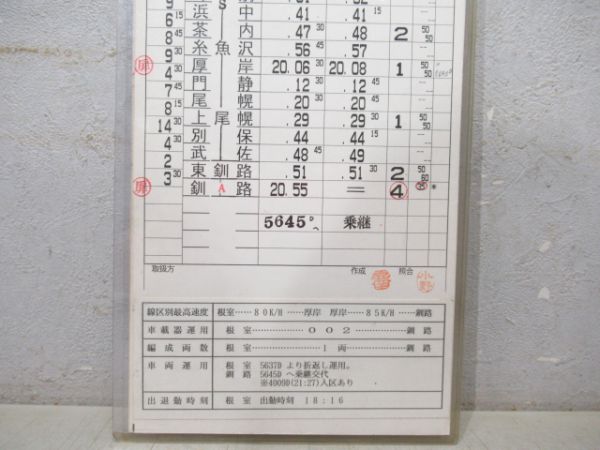 浜 中 .41 .41 15
6 15 茶 内 .47 30 .48 2 50 50
8 糸魚沢 .56 45 .57
9 厚 岸 20.06 30 20.08 1 50 50
4 30 門 静 .12 30 .12 45
7 45 尾 幌 .20 30 .20 45
8 15 上尾幌 .29 .29 30 1 50 50
14 30 別 保 .44 .44 15
4 武 佐 .48 45 .49
2 東釧路 .51 .51 30 2 50 60
3 釧 A 路 20.55 = 4
5645D へ 乗継
取扱方 作成 照合 小野
線区別最高速度 根室……80K/H……厚岸 厚岸……85K/H……釧路
車載器運用 根室………………002………………釧路
編成両数 根室………………1両………………釧路
車両運用 根室 5637D より折返し運用。
釧路 5645D へ乗継交代
※4009D(21:27)入区あり
出退勤時刻 根室 出勤時刻 18:16